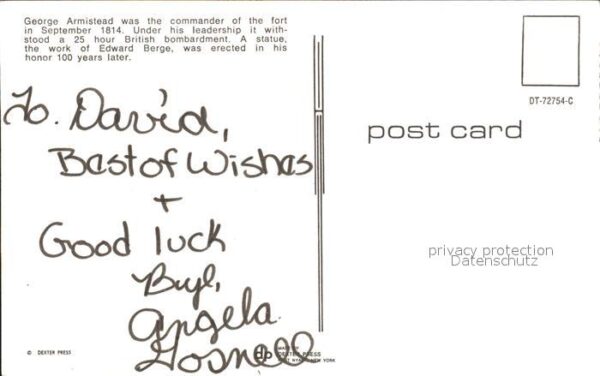 George Armistead was the commander of the fort
in September 1814. Under his leadership it with-
stood a 25 hour British bombardment. A statue,
the work of Edward Berge, was erected in his
honor 100 years later.
To. David,
Best of Wishes
+
Good luck
Angela
Gosnell
© DEXTER PRESS
dp
DEXTER PRESS
NEW YORK
DT-72754-C
post card
privacy protection
Datenschutz